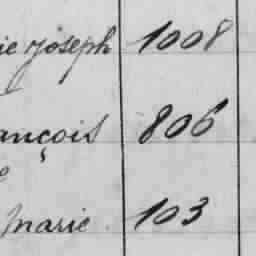 ie Joseph 1008
ançois 806
e
Marie 103